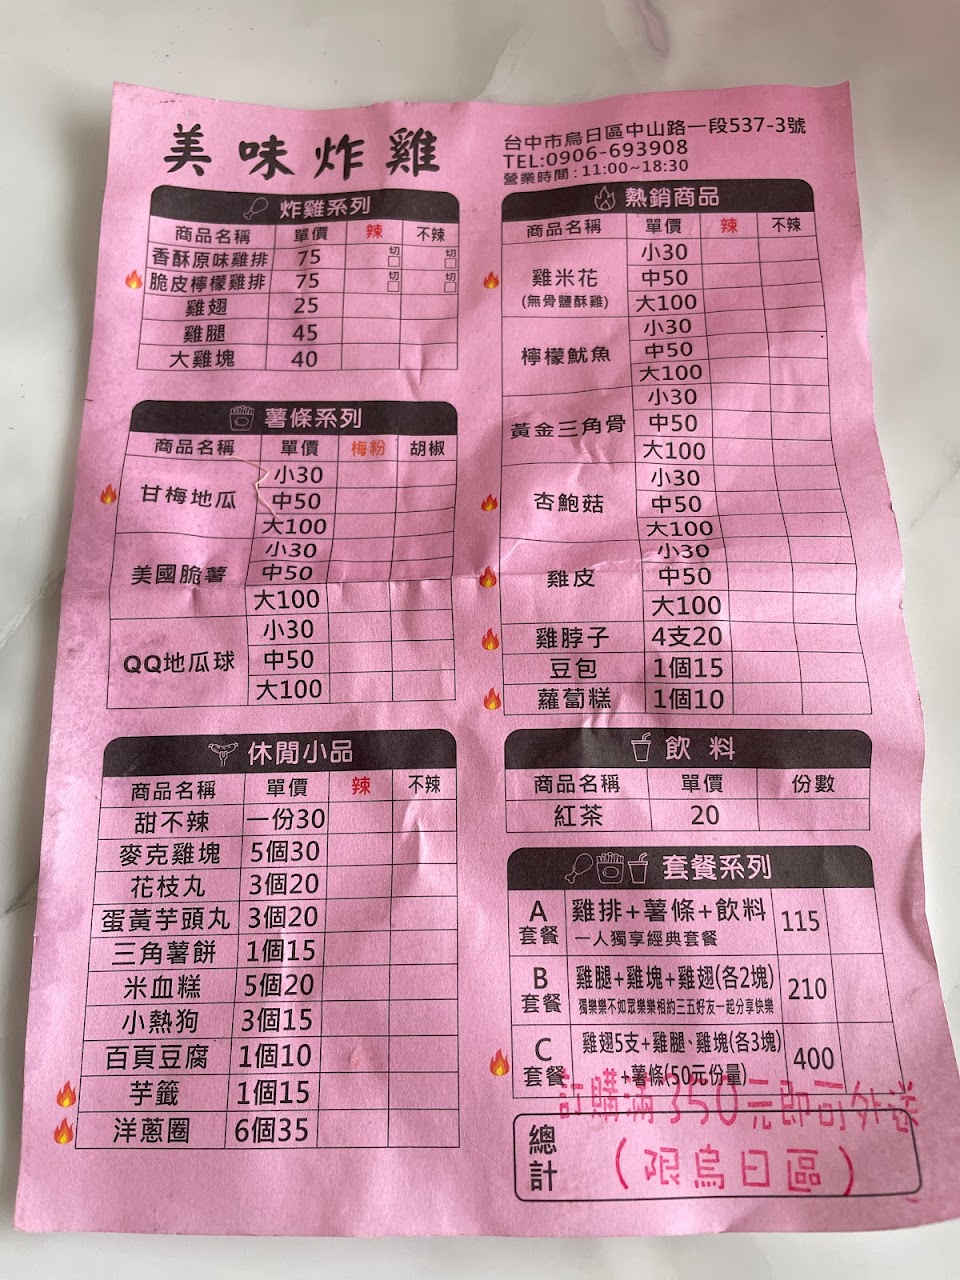 美味炸雞
台中市烏日區中山路一段537-3號
TEL:0906-693908
營業時間：11:00~18:30
炸雞系列
商品名稱 單價 辣 不辣
香酥原味雞排 75 切 切
脆皮檸檬雞排 75 切 切
雞翅 25
雞腿 45
大雞塊 40
薯條系列
商品名稱 單價 梅粉 胡椒
甘梅地瓜
小30
中50
大100
美國脆薯
小30
中50
大100
QQ地瓜球
小30
中50
大100
休閒小品
商品名稱 單價 辣 不辣
甜不辣 一份30
麥克雞塊 5個30
花枝丸 3個20
蛋黃芋頭丸 3個20
三角薯餅 1個15
米血糕 5個20
小熱狗 3個15
百頁豆腐 1個10
芋籤 1個15
洋蔥圈 6個35
熱銷商品
商品名稱 單價 辣 不辣
雞米花
(無骨鹽酥雞)
小30
中50
大100
檸檬魷魚
小30
中50
大100
黃金三角骨
小30
中50
大100
杏鮑菇
小30
中50
大100
雞皮
小30
中50
大100
雞脖子 4支20
豆包 1個15
蘿蔔糕 1個10
飲料
商品名稱 單價 份數
紅茶 20
套餐系列
A套餐 雞排+薯條+飲料 115
一人獨享經典套餐
B套餐 雞腿+雞塊+雞翅(各2塊) 210
獨樂樂不如眾樂樂相約三五好友一起分享快樂
C套餐 雞翅5支+雞腿、雞塊(各3塊) 400
+薯條(50元份量)
訂購滿350元即可外送
(限烏日區)
總計